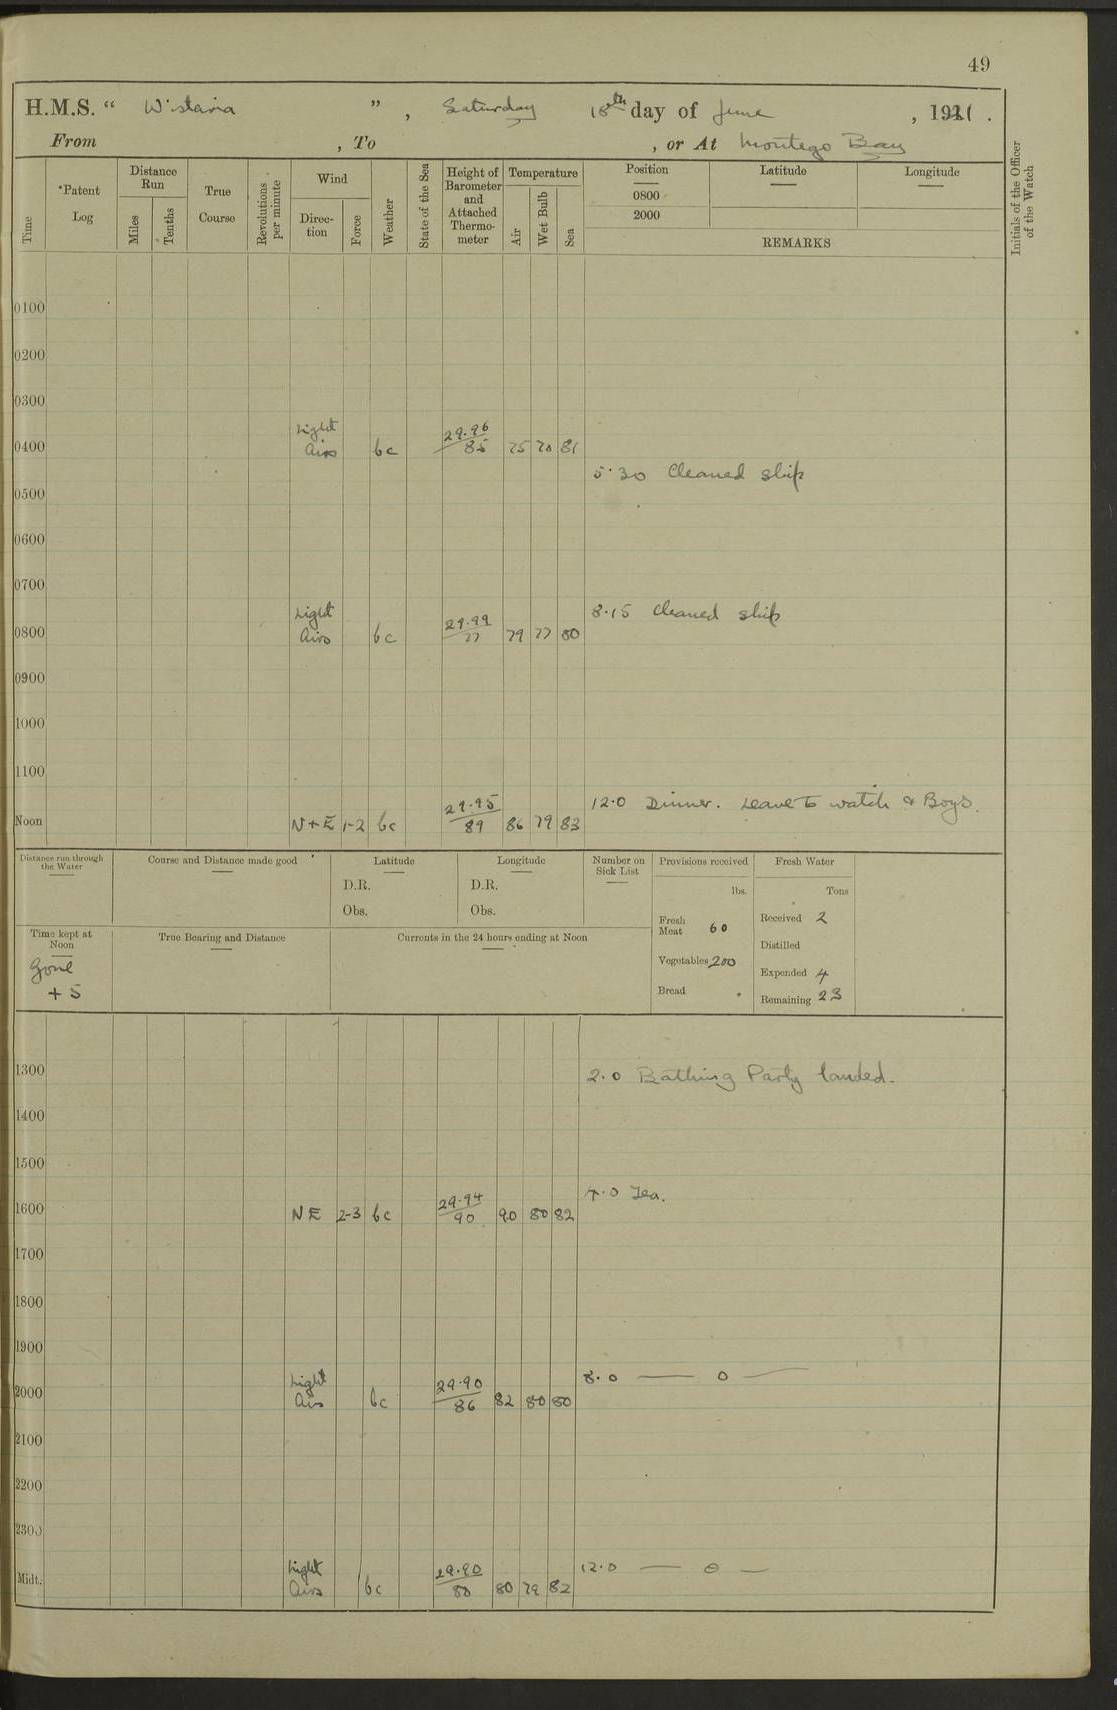 49
H.M.S. " Wistaria ", Saturday 18th day of June, 1921.
From , To , or At Montego Bay
Time
*Patent Log
Distance Run
Miles
Tenths
True Course
Revolutions per minute
Wind
Direc-tion
Force
Weather
State of the Sea
Height of Barometer and Attached Thermo-meter
Temperature
Air
Wet Bulb
Sea
Position
0800
2000
Latitude
Longitude
REMARKS
Initials of the Officer of the Watch
0100
0200
0300
0400 Light Airs bc 29.96 85 75 70 81
5.30 Cleaned ship
0500
0600
0700
8.15 Cleaned ship
0800 Light Airs bc 29.99 77 79 77 80
0900
1000
1100
12.0 Dinner. Leave to watch & Boys.
Noon N+E 1-2 bc 29.95 89 86 79 83
Distance run through the Water
Course and Distance made good
Latitude
D.R.
Obs.
Longitude
D.R.
Obs.
Number on Sick List
Provisions received
lbs.
Fresh Meat 60
Vegetables 200
Bread
Fresh Water
Tons
Received 2
Distilled
Expended 4
Remaining 23
Time kept at Noon
Zone
+5
True Bearing and Distance
Currents in the 24 hours ending at Noon
1300
2.0 Bathing Party landed.
1400
1500
4.0 Tea.
1600 NE 2-3 bc 29.94 90 90 80 82
1700
1800
1900
8.0 — o —
2000 Light Airs bc 29.90 86 82 80 80
2100
2200
2300
12.0 — o —
Midt. Light Airs bc 29.90 80 80 79 82